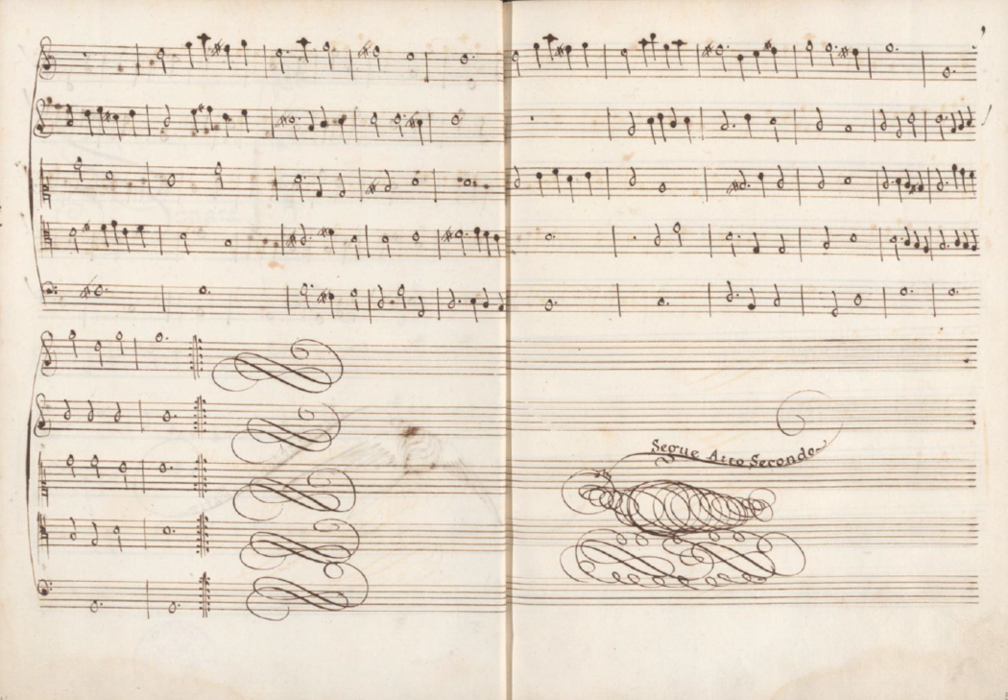 Segue Atto Secondo